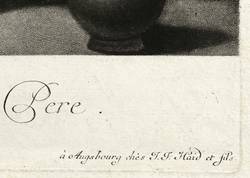 Pere .
à Augsbourg chés J. J. Haid et fils.